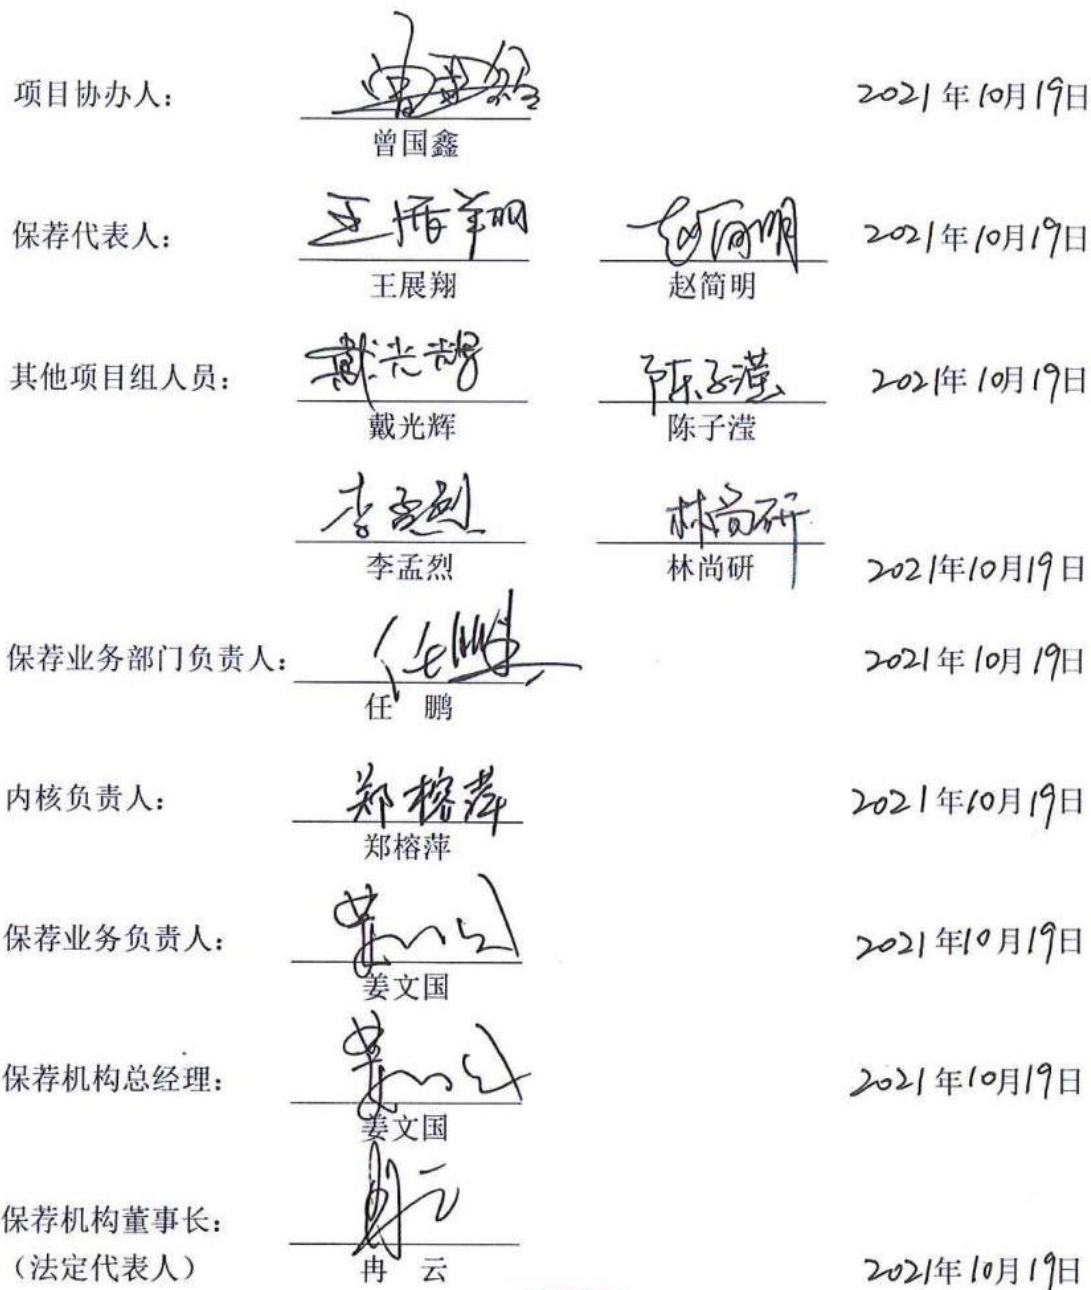 项目协办人： 曾国鑫 2021年10月19日
曾国鑫
保荐代表人： 王展翔 赵简明 2021年10月19日
王展翔 赵简明
其他项目组人员： 戴光辉 陈子滢 2021年10月19日
戴光辉 陈子滢
李孟烈 林尚研
李孟烈 林尚研 2021年10月19日
保荐业务部门负责人： 任鹏 2021年10月19日
任 鹏
内核负责人： 郑榕萍 2021年10月19日
郑榕萍
保荐业务负责人： 姜文国 2021年10月19日
姜文国
保荐机构总经理： 姜文国 2021年10月19日
姜文国
保荐机构董事长： 冉云
（法定代表人） 冉 云 2021年10月19日